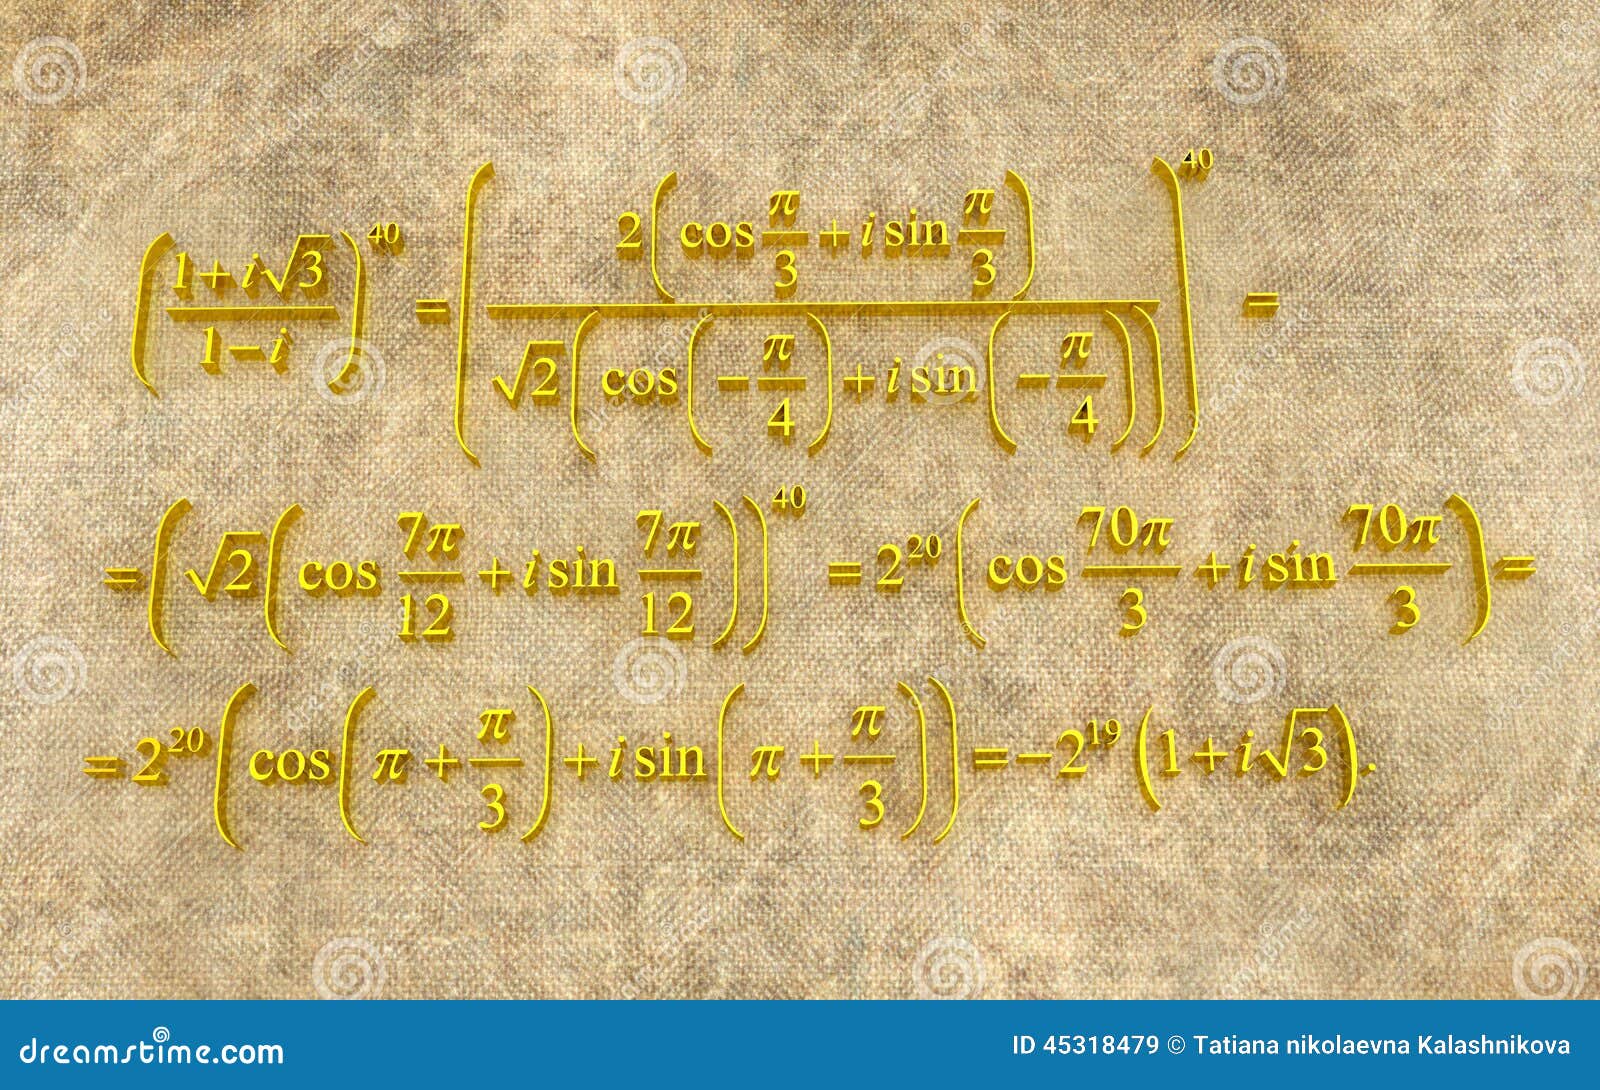 $\left(\frac{1+i\sqrt{3}}{1-i}\right)^{40}=\left(\frac{2\left(\cos\frac{\pi}{3}+i\sin\frac{\pi}{3}\right)}{\sqrt{2}\left(\cos\left(-\frac{\pi}{4}\right)+i\sin\left(-\frac{\pi}{4}\right)\right)}\right)^{40}=$
$=\left(\sqrt{2}\left(\cos\frac{7\pi}{12}+i\sin\frac{7\pi}{12}\right)\right)^{40}=2^{20}\left(\cos\frac{70\pi}{3}+i\sin\frac{70\pi}{3}\right)=$
$=2^{20}\left(\cos\left(\pi+\frac{\pi}{3}\right)+i\sin\left(\pi+\frac{\pi}{3}\right)\right)=-2^{19}\left(1+i\sqrt{3}\right).$
dreamstime.com
ID 45318479 © Tatiana nikolaevna Kalashnikova